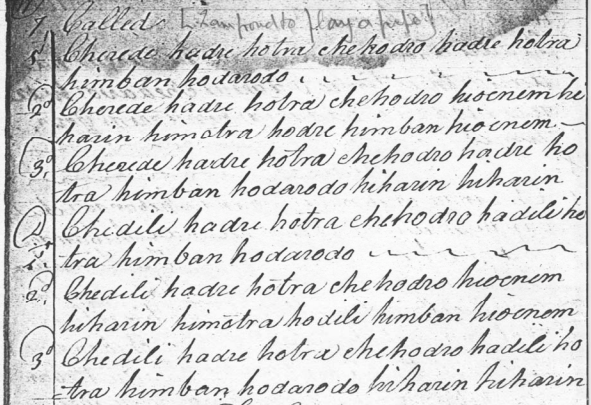 7 Called
1st Cherede hadre hotra chehodro hadre hotra
himban hodarodo
2d Cherede hadre hotra chehodro hioenem hi
harin himotra hodre himban hioenem
3d Cherede hadre hotra chehodro hadre ho
tra himban hodarodo hiharin hiharin
D Chedili hadre hotra chehodro hadili ho
1st tra himban hodarodo
2d Chedili hadre hotra chehodro hioenem
hiharin himotra hodili himban hioenem
3d Chedili hadre hotra chehodro hadili ho
tra himban hodarodo hiharin hiharin